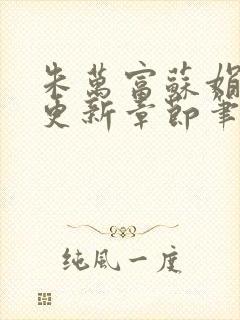 朱萬富蘇娟
更新章節筆
純風一度